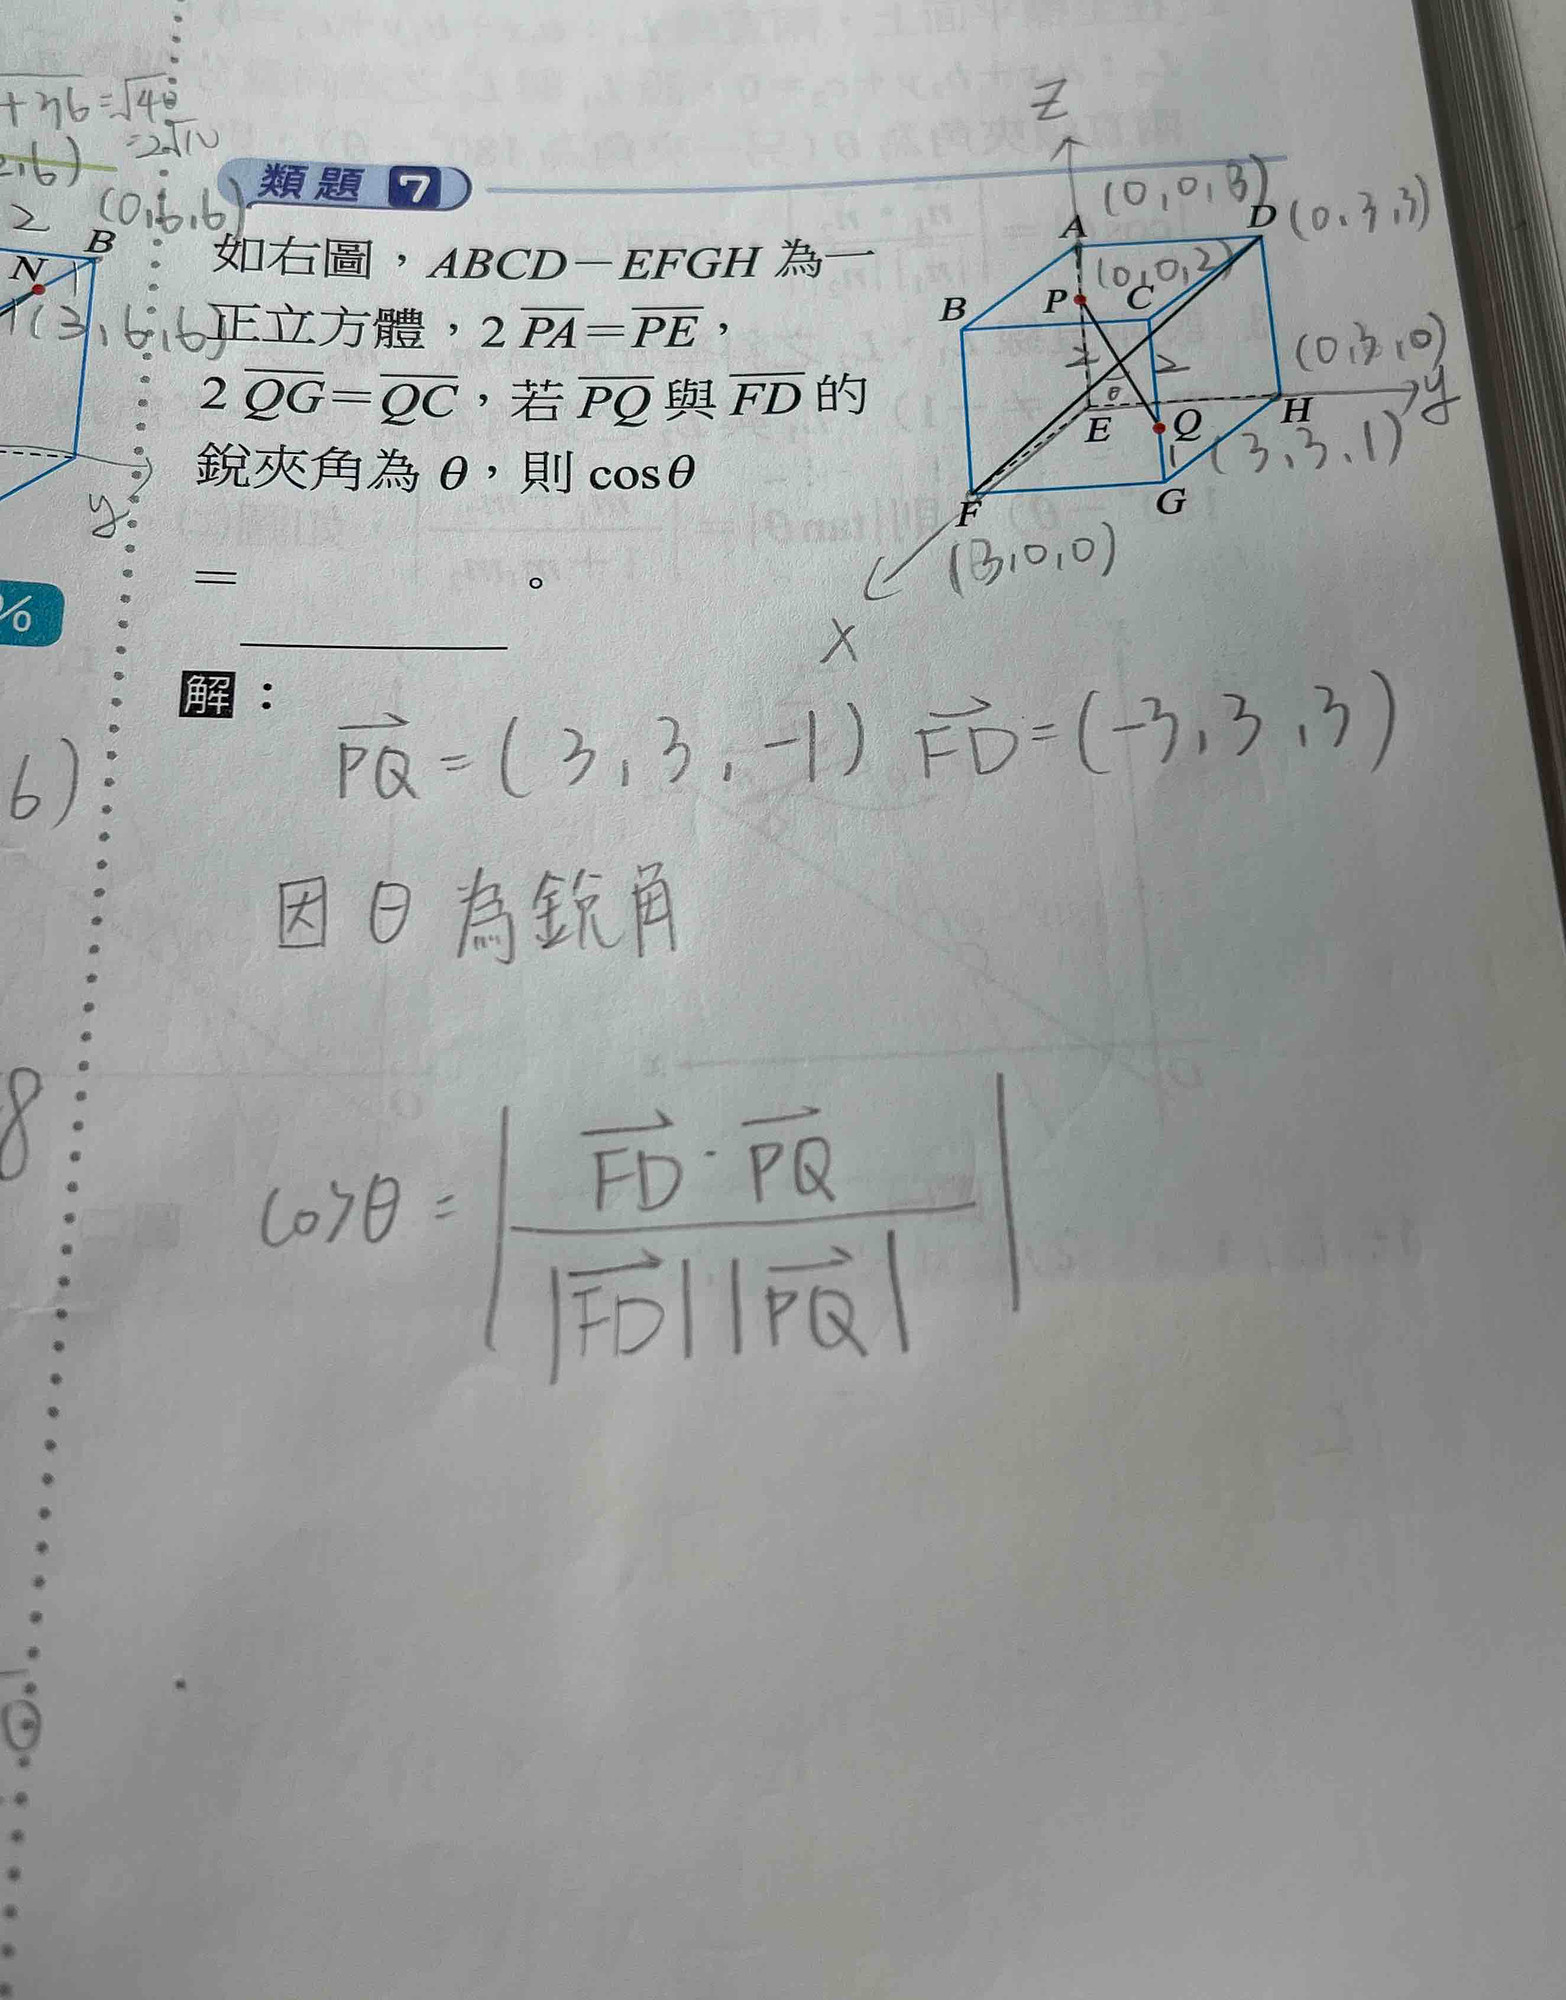 +36=√40
=2√10
2,6)
2
(0,6,6)
B
N
1
(3,6,6)
y
%
6)
8
類題 7
如右圖，ABCD－EFGH 為一
正立方體，2 PA＝PE，
2 QG＝QC，若 PQ 與 FD 的
銳夾角為 θ，則 cosθ
＝ ________ 。
z
(0,0,3)
A
D (0,3,3)
(0,0,2)
B
P
C
2
2
θ
(0,3,0)
y
E
Q
H
1 (3,3,1)
F
G
(3,0,0)
x
解：
PQ = (3,3,-1) FD = (-3,3,3)
因 θ 為銳角
cosθ = | FD · PQ
|FD| |PQ| |